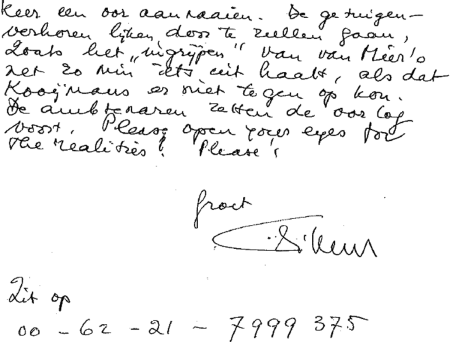 keer een oor aannaaien. De getuigen-
verhoren lijken door te zullen gaan,
zoals het "ingrijpen" van van Mier's
net zo min iets uit haalt, als dat
Kooijmans er niet tegen op kon.
De ambtenaren zetten de oorlog
voort. Please open your eyes for
The realities! Please!
groet
Zit op
00 - 62 - 21 - 7999 375